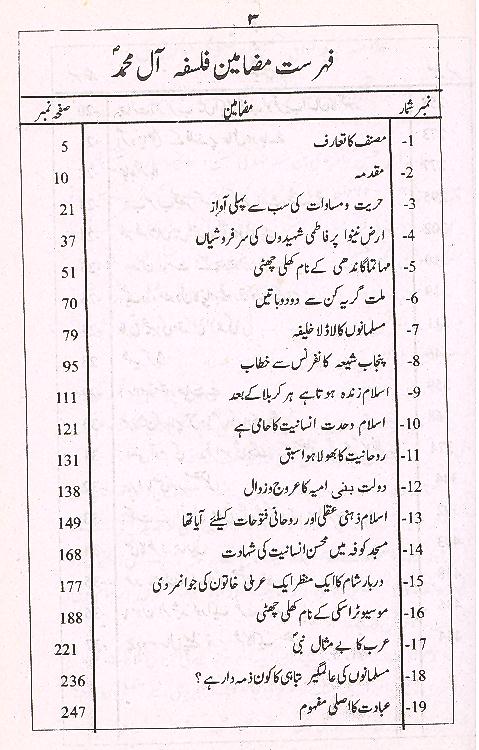 ۳
فہرست مضامین فلسفہ آل محمدؐ
نمبر شمار مضامین صفحہ نمبر
1- مصنف کا تعارف 5
2- مقدمہ 10
3- حریت و مساوات کی سب سے پہلی آواز 21
4- ارض نینوا پر فاطمی شہیدوں کی سرفروشیاں 37
5- مہاتما گاندھی کے نام کھلی چھٹی 51
6- ملت گریہ کن سے دو دو باتیں 70
7- مسلمانوں کا لاڈلا خلیفہ 79
8- پنجاب شیعہ کانفرنس سے خطاب 95
9- اسلام زندہ ہوتا ہے ہر کربلا کے بعد 111
10- اسلام وحدت انسانیت کا حامی ہے 121
11- روحانیت کا بھولا ہوا سبق 131
12- دولت بنی امیہ کا عروج و زوال 138
13- اسلام ذہنی عقلی اور روحانی فتوحات کیلئے آیا تھا 149
14- مسجد کوفہ میں محسن انسانیت کی شہادت 168
15- دربار شام کا ایک منظر ایک عربی خاتون کی جوانمردی 177
16- موسیو ٹراسکی کے نام کھلی چھٹی 188
17- عرب کا بے مثال نبیؐ 221
18- مسلمانوں کی عالمگیر تباہی کا کون ذمہ دار ہے؟ 236
19- عبادت کا اصلی مفہوم 247